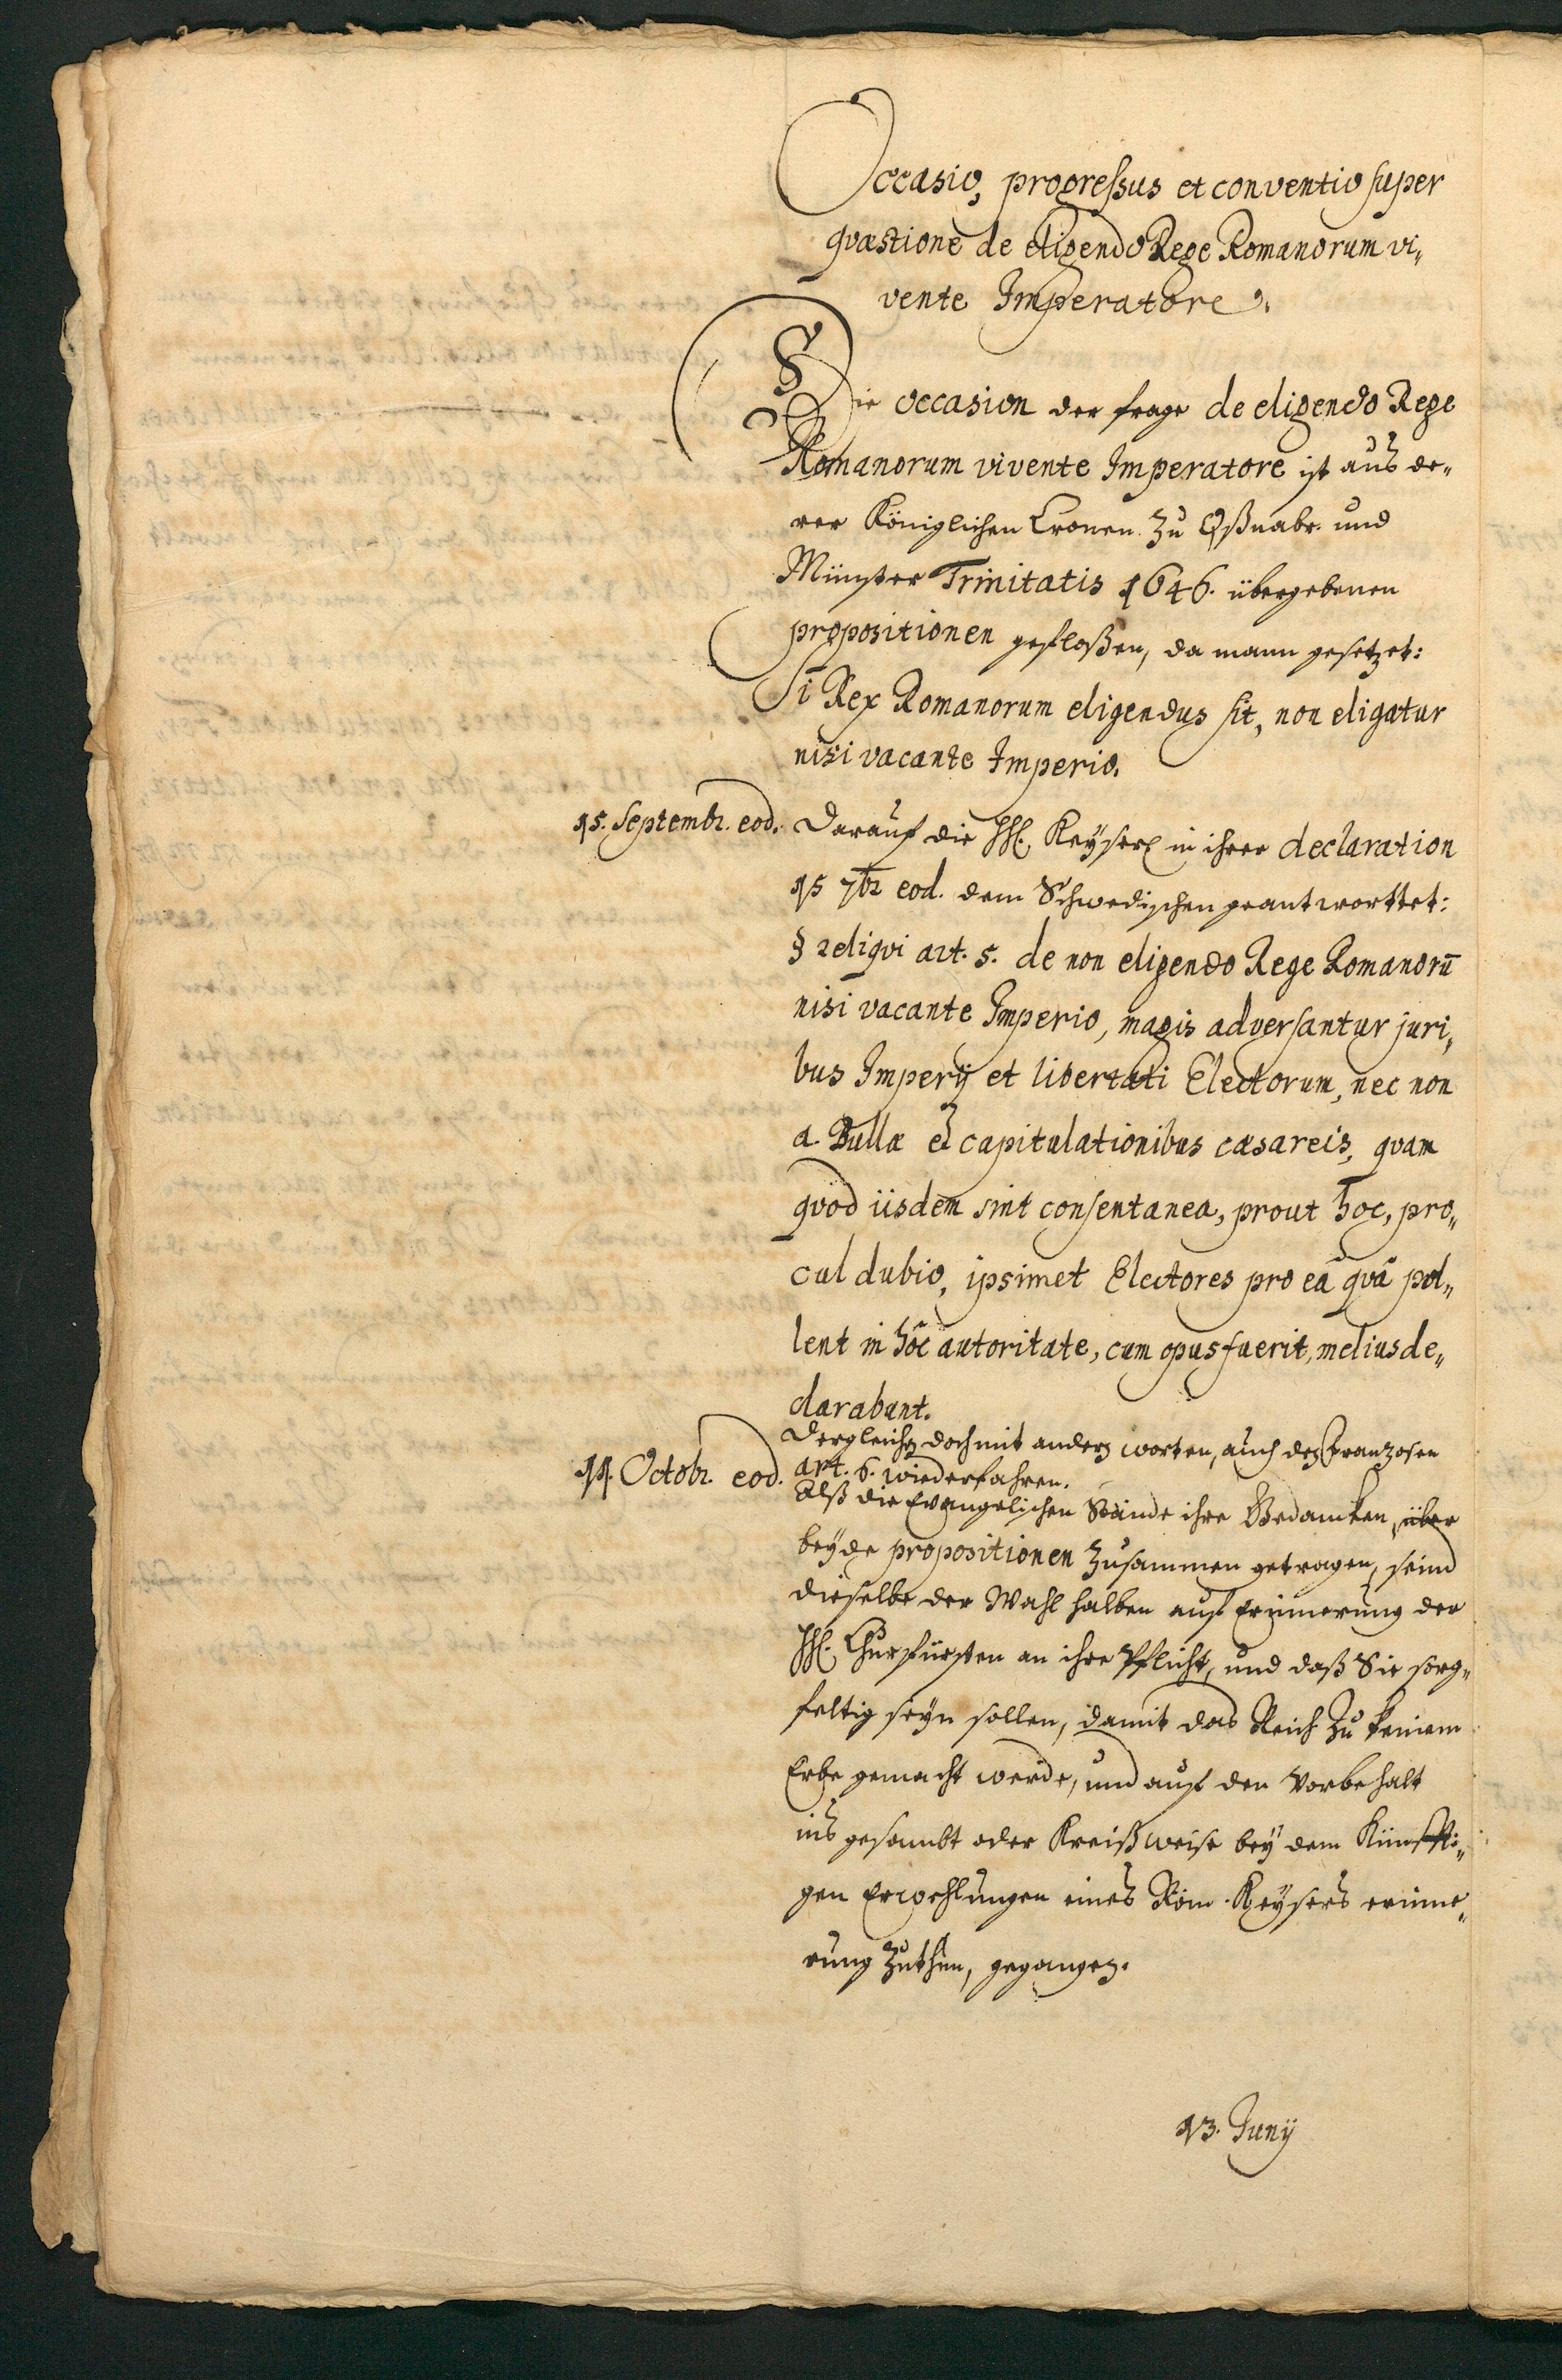 Occasio, progressus et conventio super
qvæstione de eligendo Rege Romanorum vi„
vente Imperatore.
Die occasion der frage de eligendo Rege
Romanorum vivente Imperatore ist aus de„
rer Königlichen Cronen zu Oßnabr. und
Münster Trinitatis 1646. übergebenen
propositionen gefloßen, da mann gesetzet:
Si Rex Romanorum eligendus sit, non eligatur
nisi vacante Imperio.
15. Septembr. eod. Darauf die HH. Keyserl. in ihrer declaration
15 7br eod. dem Schwedischen geantworttet:
§ reliqvi art. 5. de non eligendo Rege Romanorū
nisi vacante Imperio, magis adversantur juri„
bus Imperÿ et libertati Electorum, nec non
a. Bullæ et capitulationibus cæsareis, qvam
qvod iisdem sint consentanea, prout hoc, pro„
cul dubio, ipsimet Electores pro eâ qvâ pol„
lent in hôc autoritate, cum opus fuerit, melius de„
clarabunt.
Dergleichen doch mit andern worten, auch den Franzosen
art. 6. wiederfahren.
14. Octobr. eod. Alß die Evangelischen Stände ihre Gedancken über
beyde propositionen zusammen getragen, seind
dieselbe der Wahl halben auf Erinnerung der
HH. Churfürsten an ihre Pflicht, und daß Sie sorg„
feltig seyn sollen, damit das Reich zu keinem
Erbe gemacht werde, und auf den Vorbehalt
ins gesambt oder Kreißweise bey dem Künffti„
gen Erwehlungen eines Röm. Keysers erinne„
rung zuthun, gegangen.
13. Junÿ